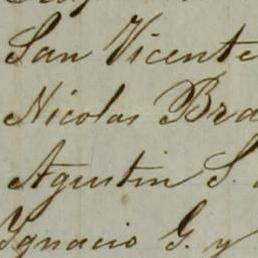 San Vicente
Nicolas Bra
Agustin S.
Ygnacio G. y